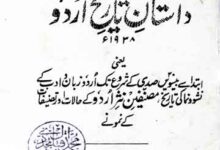 داستان تاریخ اردو
۱۹۳۸ء
یعنی
ابتدا سے بیسویں صدی کے شروع تک اُردو زبان و ادب کے
نشوونما کی تاریخ مصنفین نثر اُردو کے حالات و تصنیفات
کے نمونے